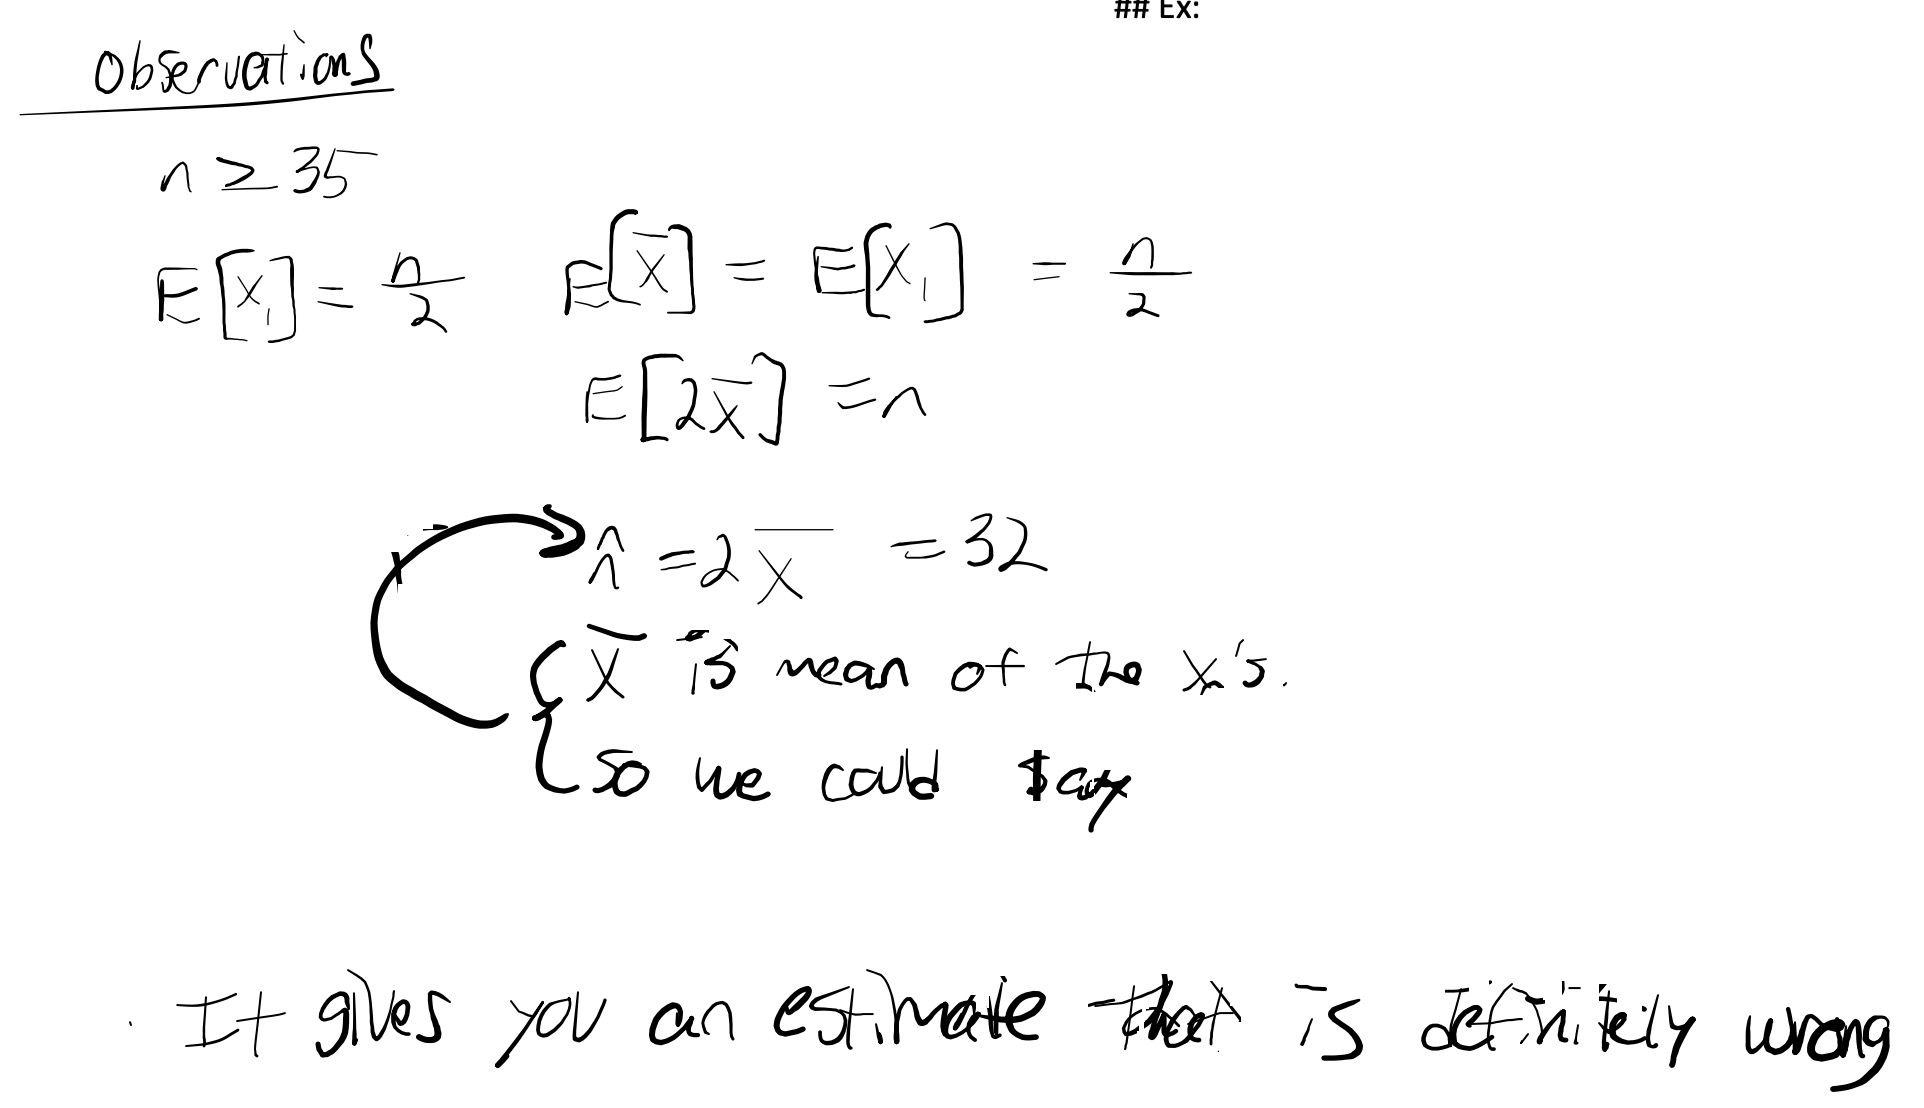 ## Ex:
Observations
n ≥ 35
E[X₁] = n/2    E[X̄] = E[X₁] = n/2
E[2X̄] = n
n̂ = 2X̄ = 32
X̄ is mean of the X's.
so we could say
It gives you an estimate that is definitely wrong